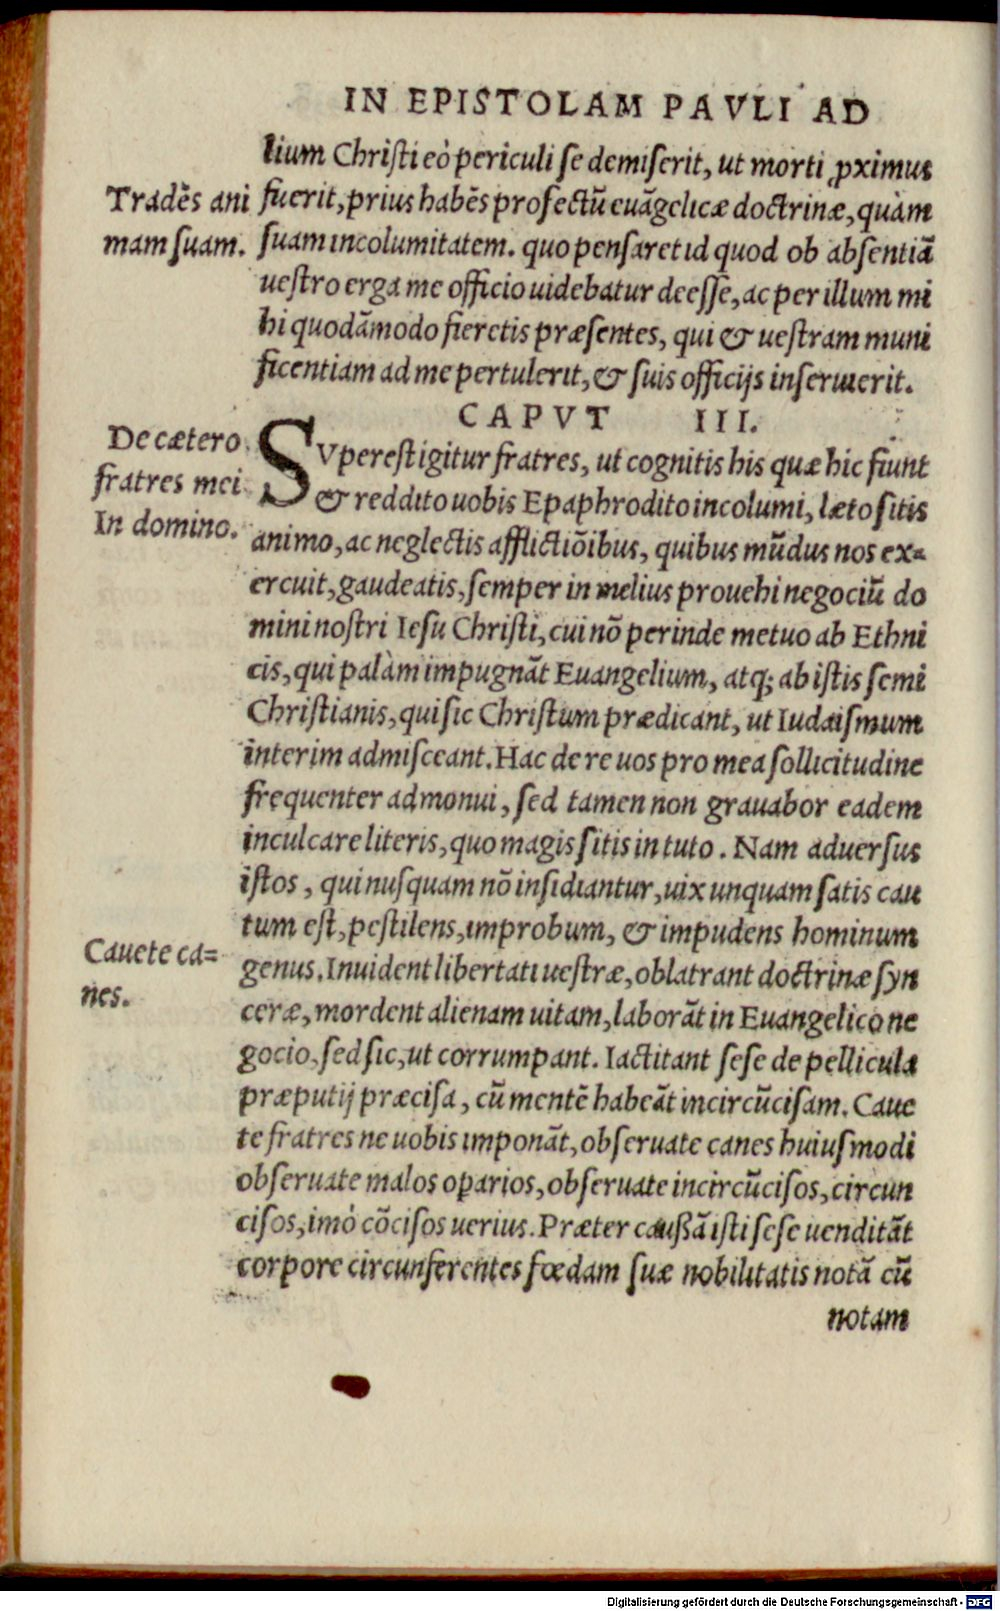 IN EPISTOLAM PAVLI AD
lium Christi eò periculi se demiserit, ut morti ꝓximus
Tradẽs ani
mam suam.
fuerit, prius habẽs profectũ euãgelicæ doctrinæ, quàm
suam incolumitatem. quo pensaret id quod ob absentiã
uestro erga me officio uidebatur deesse, ac per illum mi
hi quodãmodo fieretis præsentes, qui & uestram muni
ficentiam ad me pertulerit, & suis officijs inseruierit.
CAPVT III.
De cætero
fratres mei
In domino.
SVperest igitur fratres, ut cognitis his quæ hic fiunt
& reddito uobis Epaphrodito incolumi, læto sitis
animo, ac neglectis afflictiõibus, quibus mũdus nos ex=
ercuit, gaudeatis, semper in melius prouehi negociũ do
mini nostri Iesu Christi, cui nõ perinde metuo ab Ethni
cis, qui palàm impugnãt Euangelium, atq; ab istis semi
Christianis, qui sic Christum prædicant, ut Iudaismum
interim admisceant. Hac de re uos pro mea sollicitudine
frequenter admonui, sed tamen non grauabor eadem
inculcare literis, quo magis sitis in tuto. Nam aduersus
istos, qui nusquam nõ insidiantur, uix unquam satis cau
tum est, pestilens, improbum, & impudens hominum
Cauete ca=
nes.
genus. Inuident libertati uestræ, oblatrant doctrinæ syn
ceræ, mordent alienam uitam, laborãt in Euangelico ne
gocio, sed sic, ut corrumpant. Iactitant sese de pellicula
præputij præcisa, cũ mentẽ habeãt incircũcisam. Caue
te fratres ne uobis imponãt, obseruate canes huiusmodi
obseruate malos oꝑarios, obseruate incircũcisos, circun
cisos, imò cõcisos uerius. Præter caussã isti sese uenditãt
corpore circunferentes fœdam suæ nobilitatis notã cũ
notam
Digitalisierung gefördert durch die Deutsche Forschungsgemeinschaft - DFG